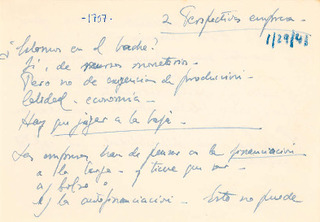 -1757-
2 Perspectivas empresa -
1/29/45
¿Estamos en el bache?
Sí, de monetario -
Pero no de de producción -
Calidad - economía -
Hay que jugar a la baja -
Las empresas han de pensar en la financiación
a la larga - y tiene que ser -
a) Bolsa
b) la autofinanciación - Esto no puede